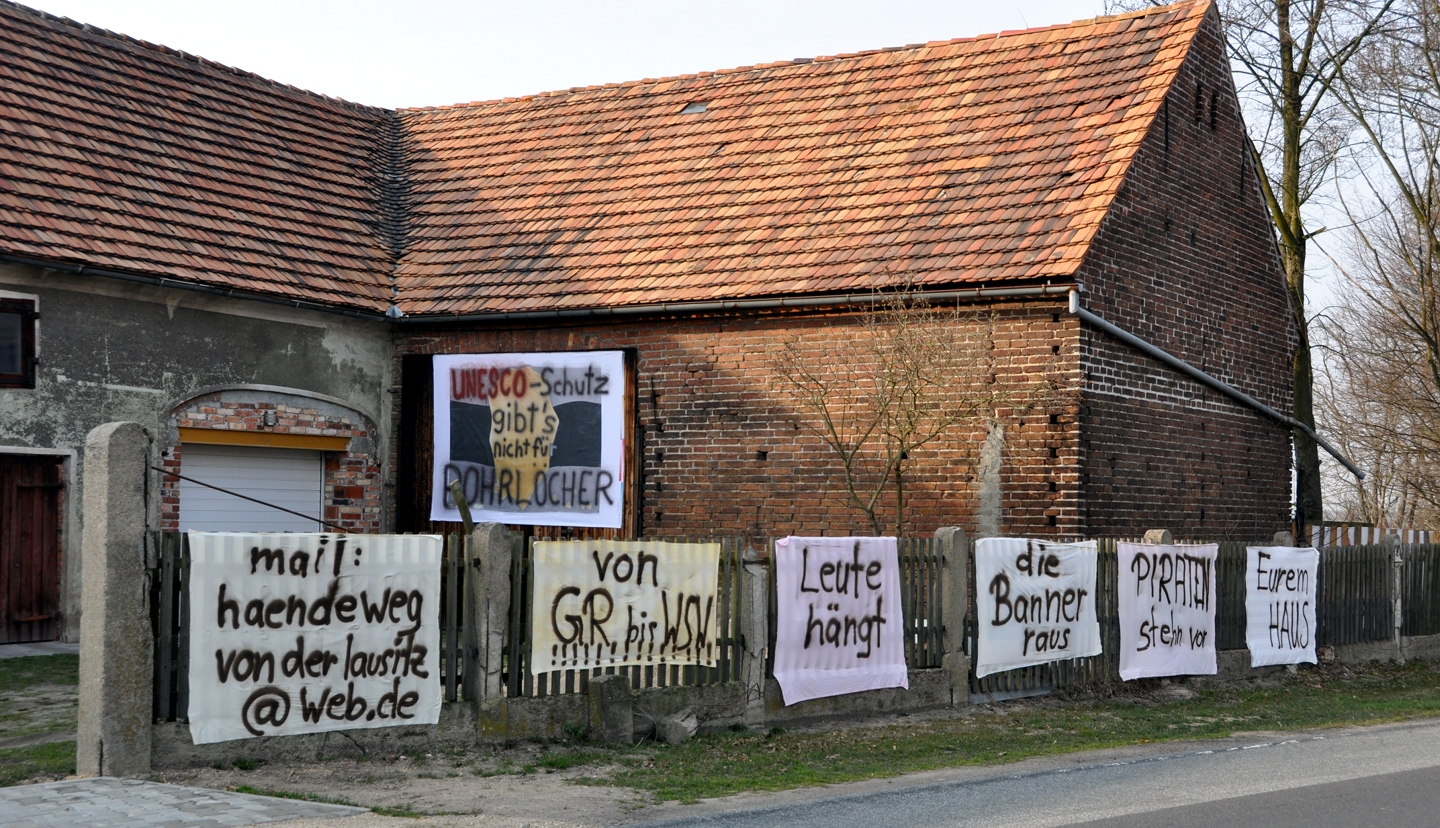 UNESCO-Schutz
gibt's
nicht für
BOHRLÖCHER
mail:
haendeweg
von der lausitz
@web.de
von
G.R. bis W.S.W.
Leute
hängt
die
Banner
raus
PIRATEN
stehn vor
Eurem
HAUS